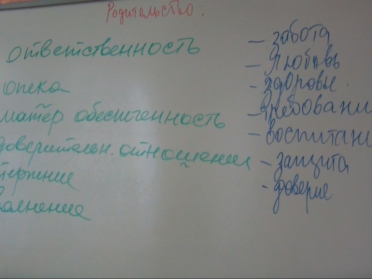 Родительство.
ответственность
опека
матер обеспеченность
доверительн. отношения
терпение
— забота
— любовь
- здоровье
- требовани
- воспитани
- защита
- доверие